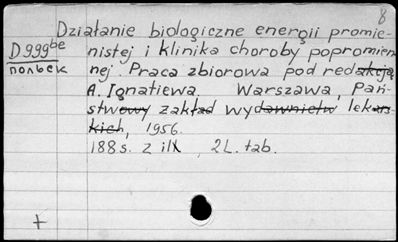 8
Działanie biologiczne energii promie-
D999be nistej i klinika choroby popromien
полвек nej. Praca zbiorowa pod redakcją
A. Ignatiewa. Warszawa, Pań-
stwowy zakład wydawnictw lekars-
kich, 1956.
188 s. z ilX, 2 L. tab.
+